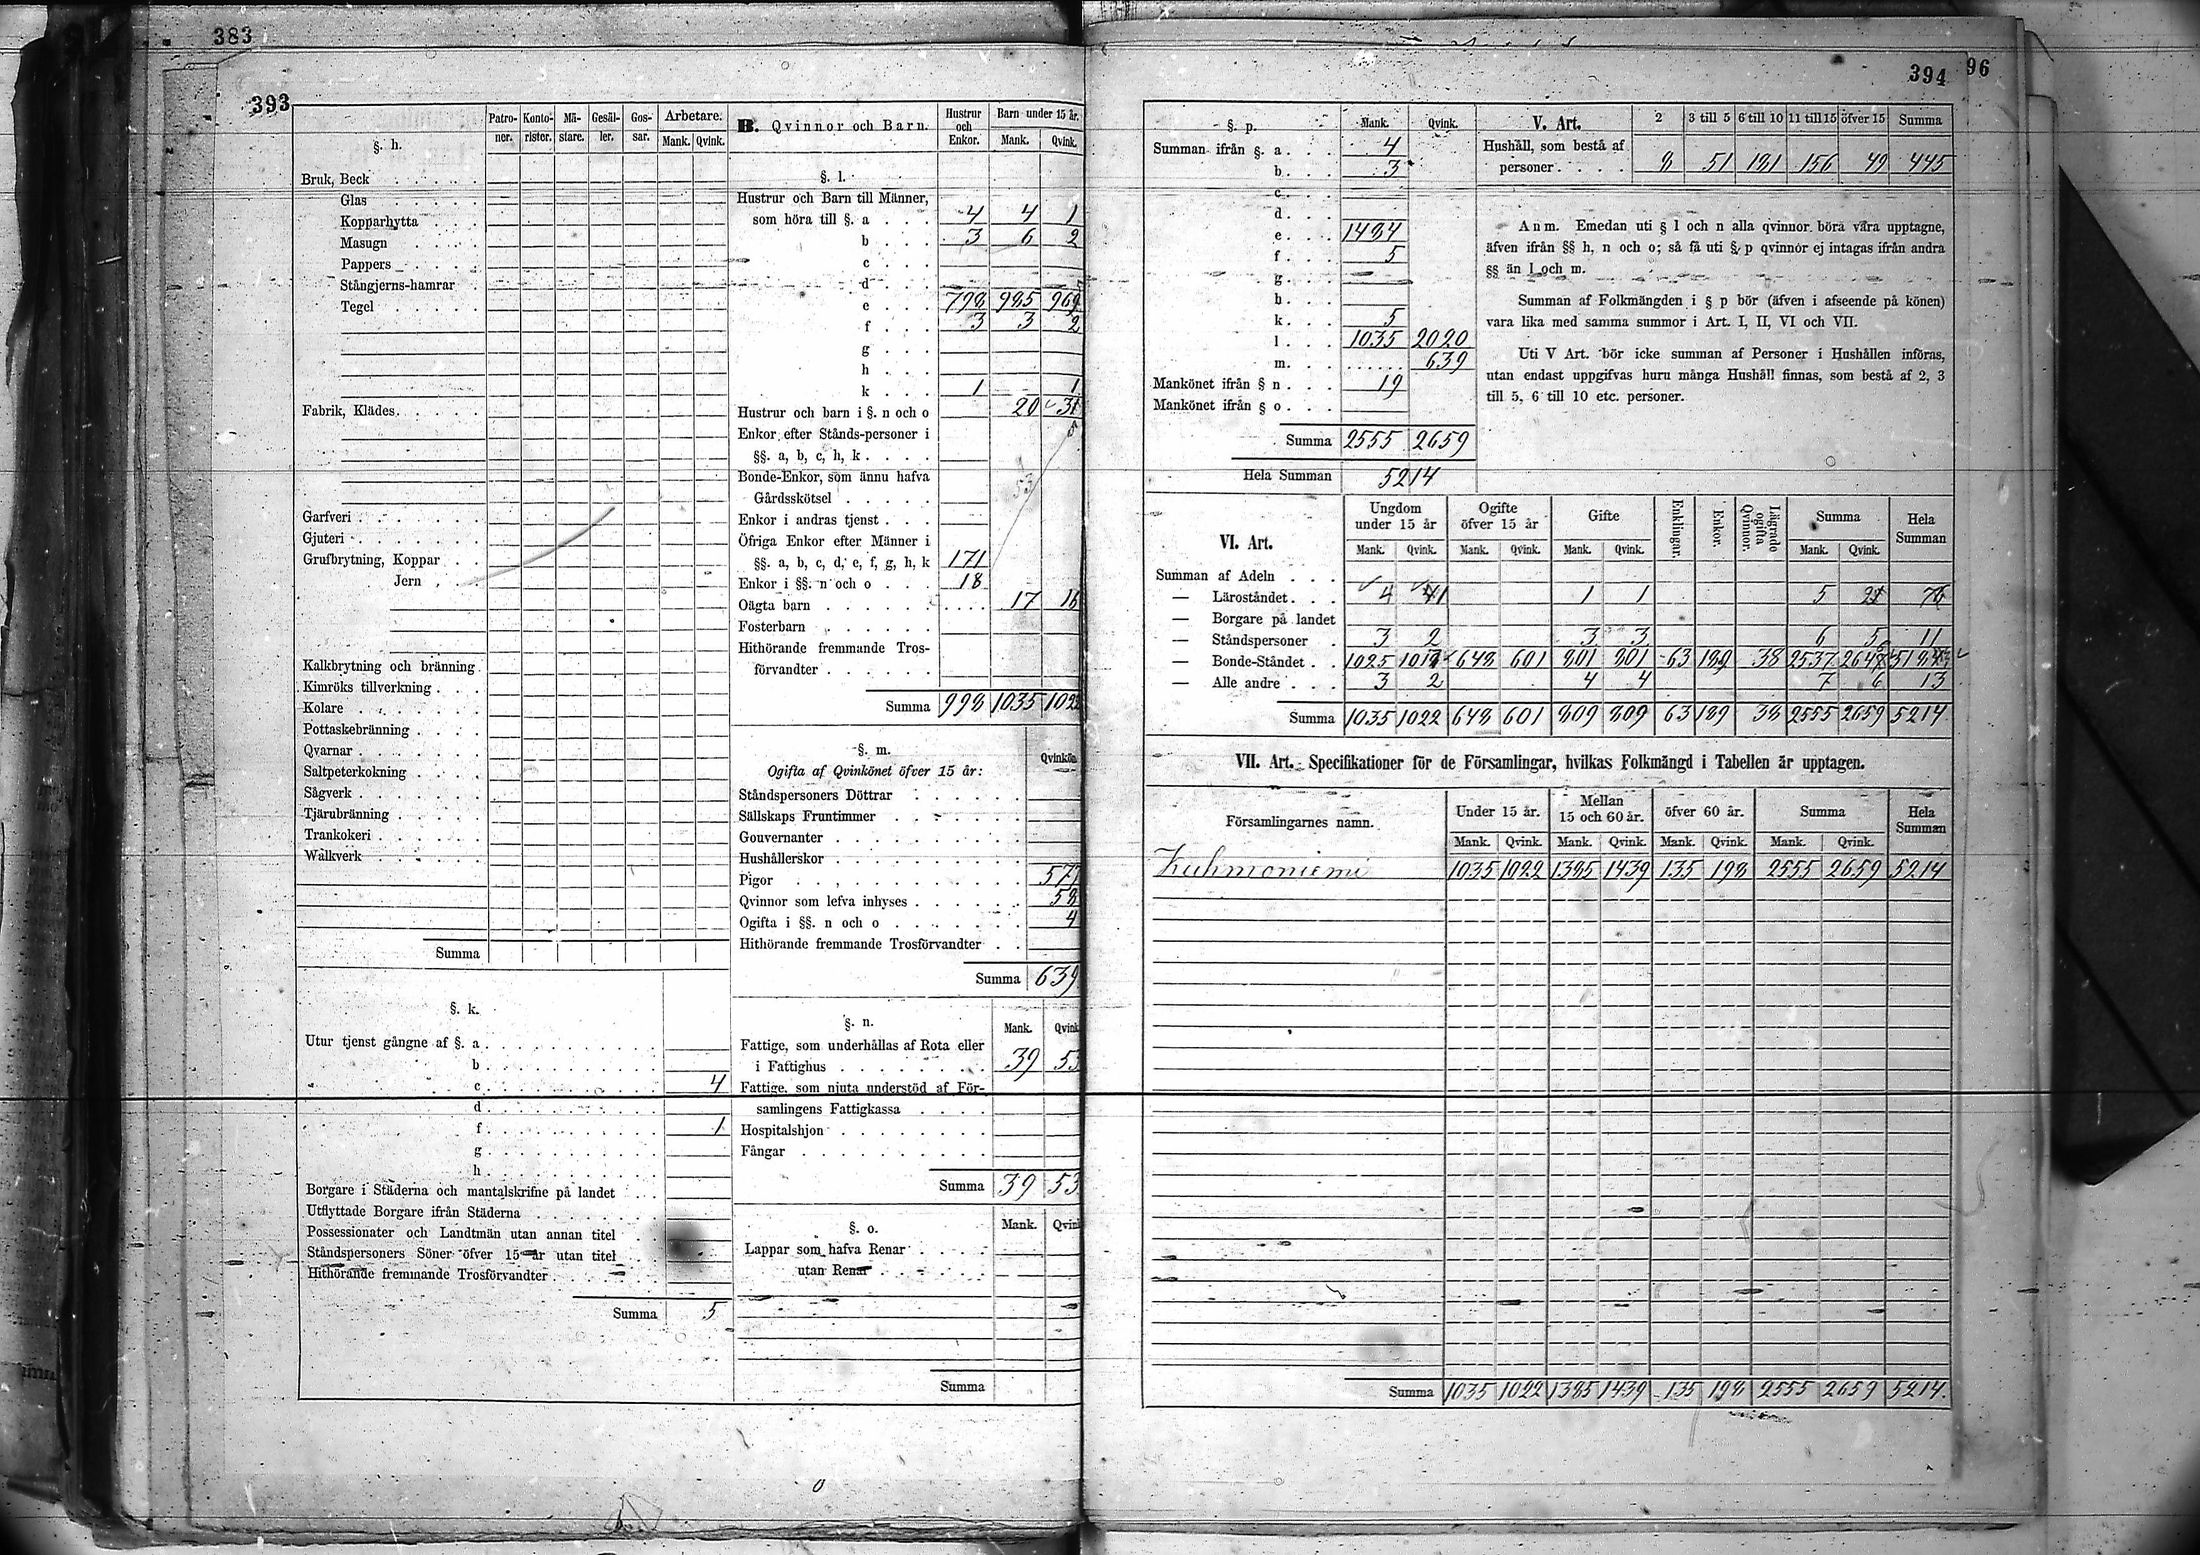 383
393
§. h.
Patro-
ner.
Konto-
rister.
Mä-
stare.
Gesäl-
ler.
Gos-
sar.
Arbetare.
Mank. Qvink.
Bruk, Beck
Glas
Kopparhytta
Masugn
Pappers
Stångjerns-hamrar
Tegel
Fabrik, Klädes
Garfveri
Gjuteri
Grufbrytning, Koppar
Jern
Kalkbrytning och bränning
Kimröks tillverkning
Kolare
Pottaskebränning
Qvarnar
Saltpeterkokning
Sågverk
Tjärubränning
Trankokeri
Walkverk
Summa
§. k.
Utur tjenst gångne af §. a
b
c 4
d
f 1
g
h
Borgare i Städerna och mantalskrifne på landet
Utflyttade Borgare ifrån Städerna
Possessionater och Landtmän utan annan titel
Ståndspersoners Söner öfver 15 år utan titel
Hithörande fremmande Trosförvandter
Summa 5
B. Qvinnor och Barn.
Hustrur
och
Enkor.
Barn under 15 år.
Mank. Qvink.
§. l.
Hustrur och Barn till Männer,
som höra till §. a 4 4 1
b 3 6 2
c
d
e 798 985 969
f 3 3 2
g
h
k 1 1
Hustrur och barn i §. n och o 20 31
Enkor efter Stånds-personer i
§§. a, b, c, h, k
Bonde-Enkor, som ännu hafva
Gårdsskötsel
53
Enkor i andras tjenst
Öfriga Enkor efter Männer i
§§. a, b, c, d, e, f, g, h, k 171
Enkor i §§. n och o 18
Oägta barn 17 16
Fosterbarn
Hithörande fremmande Tros-
förvandter
Summa 998 1035 1022
§. m.
Ogifta af Qvinkönet öfver 15 år:
Qvinkön.
Ståndspersoners Döttrar
Sällskaps Fruntimmer
Gouvernanter
Hushållerskor
Pigor 577
Qvinnor som lefva inhyses 58
Ogifta i §§. n och o 4
Hithörande fremmande Trosförvandter
Summa 639
§. n.
Mank. Qvink.
Fattige, som underhållas af Rota eller
i Fattighus 39 53
Fattige, som njuta understöd af För-
samlingens Fattigkassa
Hospitalshjon
Fångar
Summa 39 53
§. o.
Mank. Qvink.
Lappar som hafva Renar
utan Renar
Summa
394 96
§. p.
Mank. Qvink.
Summan ifrån §. a 4
b 3
c
d
e 1484
f 5
g
h
k 5
l 1035 2020
m 639
Mankönet ifrån § n 19
Mankönet ifrån § o
Summa 2555 2659
Hela Summan 5214
V. Art. 2 3 till 5 6 till 10 11 till 15 öfver 15 Summa
Hushåll, som bestå af
personer 8 51 181 156 49 445
Anm. Emedan uti § l och n alla qvinnor böra vara upptagne,
äfven ifrån §§ h, n och o; så få uti § p qvinnor ej intagas ifrån andra
§§ än l och m.
Summan af Folkmängden i § p bör (äfven i afseende på könen)
vara lika med samma summor i Art. I, II, VI och VII.
Uti V Art. bör icke summan af Personer i Hushållen införas,
utan endast uppgifvas huru många Hushåll finnas, som bestå af 2, 3
till 5, 6 till 10 etc. personer.
VI. Art.
Ungdom
under 15 år
Ogifte
öfver 15 år
Gifte
Enklingar.
Enkor.
Lägrade
ogifta
Qvinnor.
Summa
Hela
Summan
Mank. Qvink. Mank. Qvink. Mank. Qvink. Mank. Qvink.
Summan af Adeln
— Läroståndet 4 1 1 1 5 2 7
— Borgare på landet
— Ståndspersoner 3 2 3 3 6 5 11
— Bonde-Ståndet 1025 648 601 801 801 63 189 38 2537
— Alle andre 3 2 4 4 7 6 13
Summa 1035 1022 648 601 809 809 63 189 38 2555 2659 5214
VII. Art. Specifikationer för de Församlingar, hvilkas Folkmängd i Tabellen är upptagen.
Församlingarnes namn.
Under 15 år.
Mellan
15 och 60 år.
öfver 60 år.
Summa
Hela
Summan
Mank. Qvink. Mank. Qvink. Mank. Qvink. Mank. Qvink.
Kuhmoniemi 1035 1022 1385 1439 135 198 2555 2659 5214
Summa 1035 1022 1385 1439 135 198 2555 2659 5214